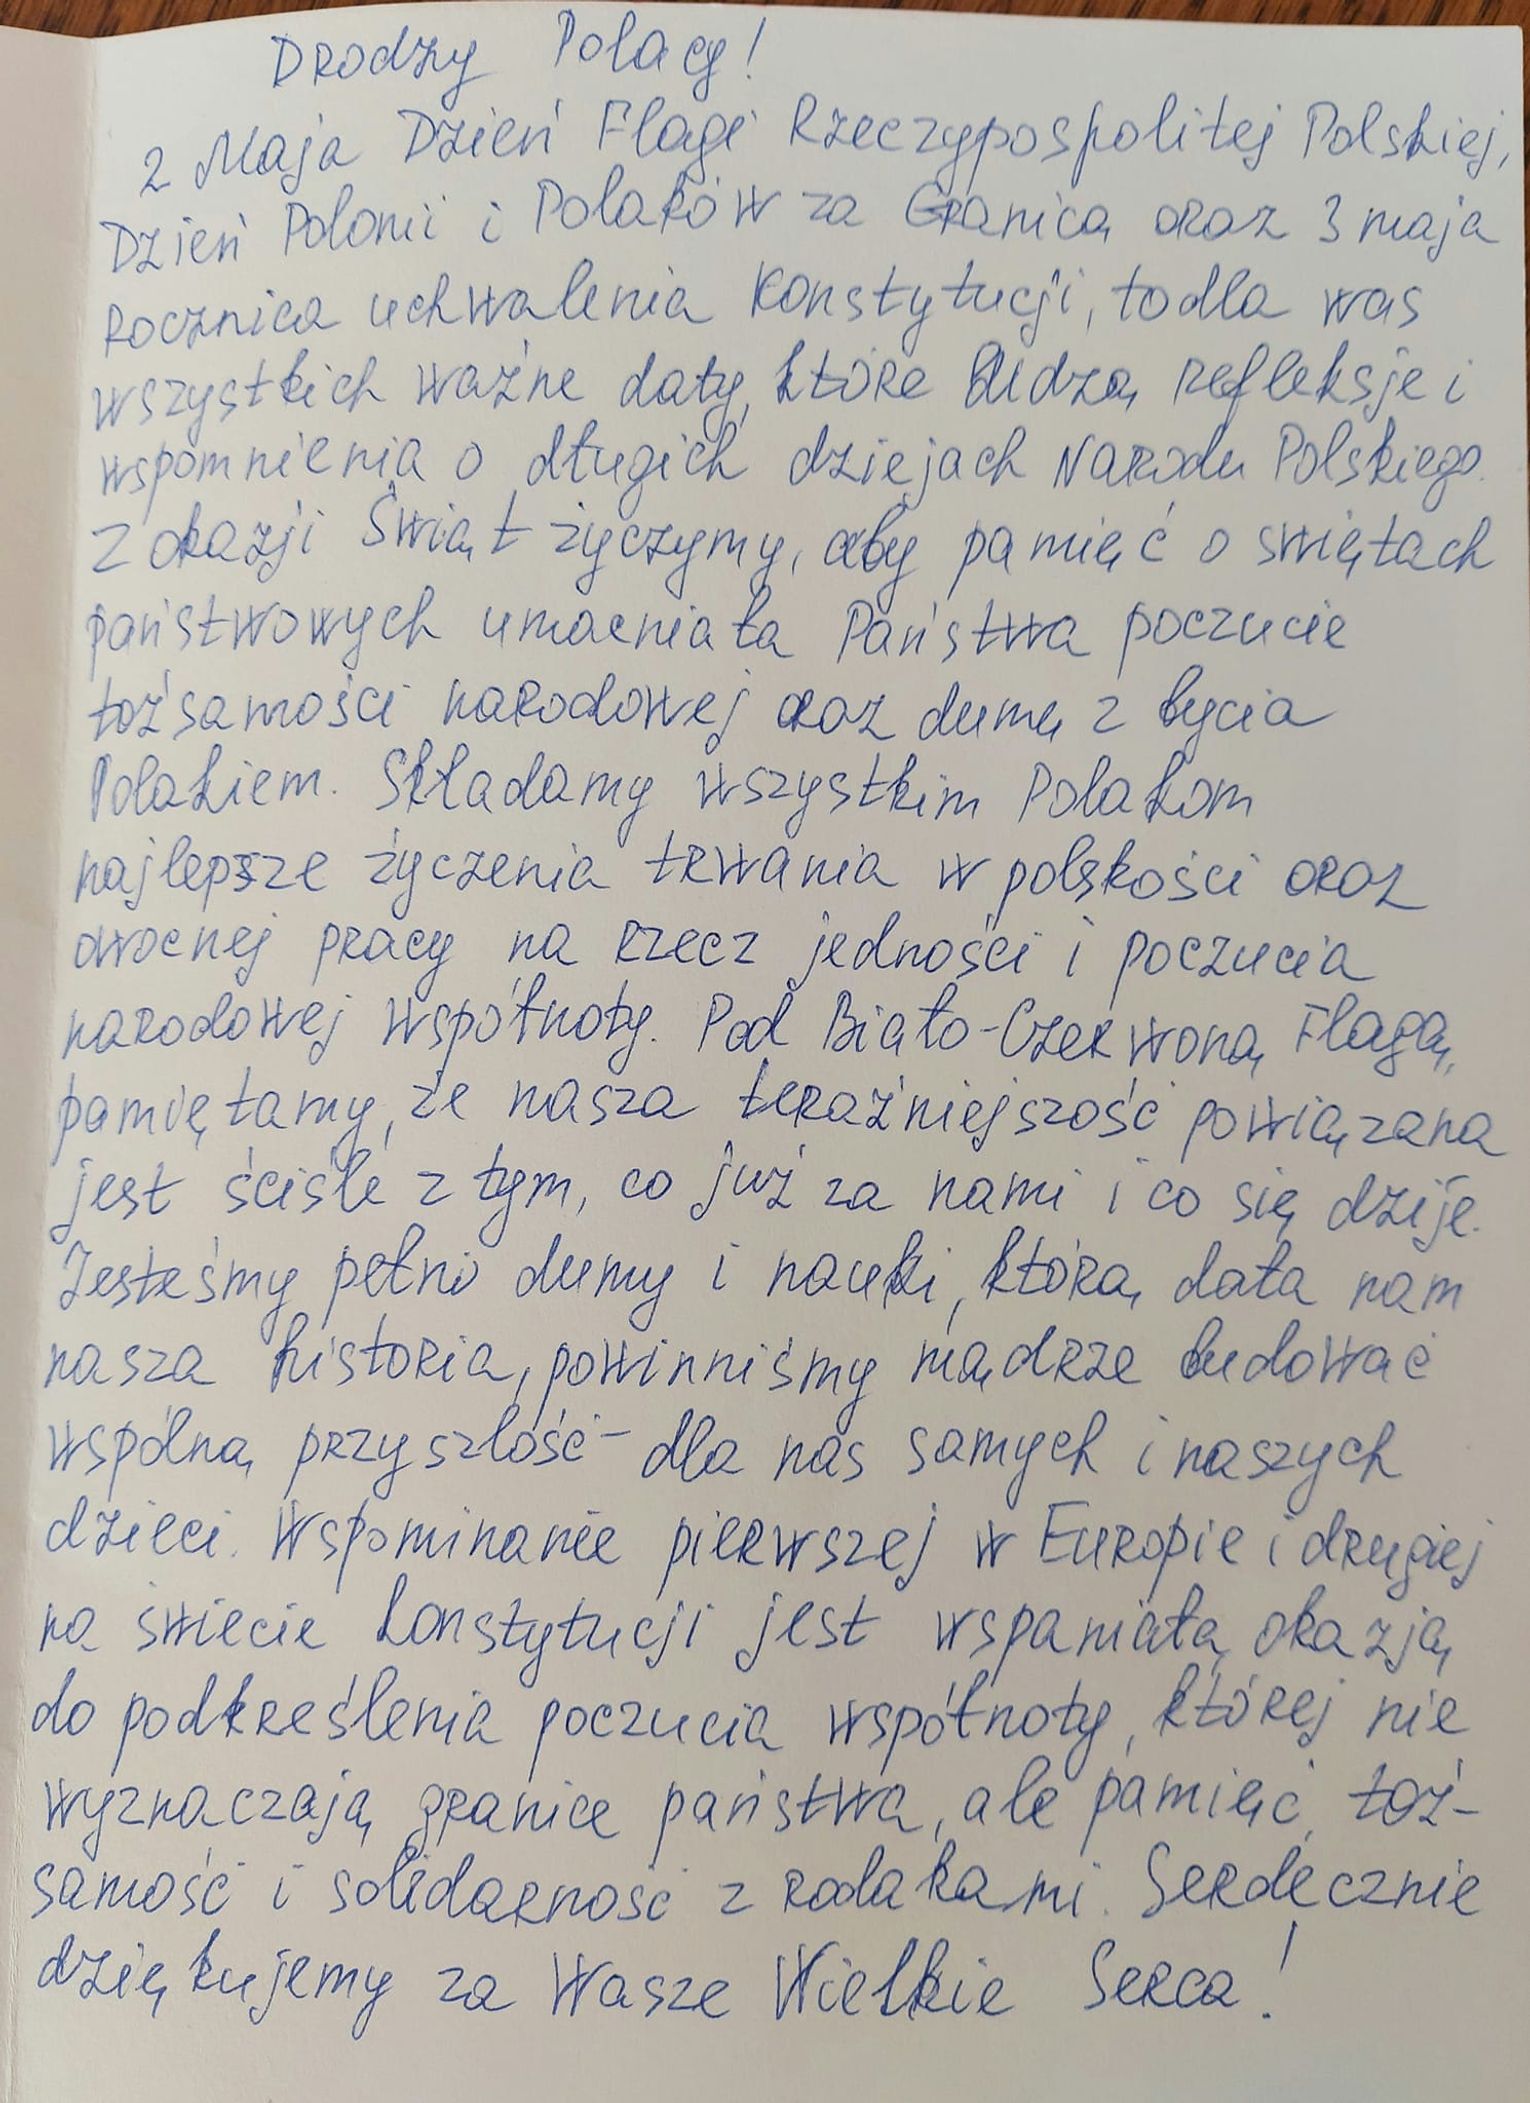 Drodzy Polacy!
2 Maja Dzień Flagi Rzeczypospolitej Polskiej,
Dzień Polonii i Polaków za Granicą oraz 3 maja
Rocznica uchwalenia Konstytucji, to dla was
wszystkich ważne daty, które budzą refleksje i
wspomnienia o długich dziejach Narodu Polskiego.
Z okazji Świąt życzymy, aby pamięć o świętach
państwowych umacniała Państwa poczucie
tożsamości narodowej oraz dumę z bycia
Polakiem. Składamy wszystkim Polakom
najlepsze życzenia trwania w polskości oraz
owocnej pracy na rzecz jedności i poczucia
narodowej wspólnoty. Pod Biało-Czerwoną Flagą,
pamiętamy, że nasza teraźniejszość powiązana
jest ściśle z tym, co już za nami i co się dzije.
Jesteśmy pełni dumy i nauki, którą dała nam
nasza historia, powinniśmy mądrze budować
wspólną przyszłość - dla nas samych i naszych
dzieci. Wspominanie pierwszej w Europie i drugiej
na świecie konstytucji jest wspaniałą okazją
do podkreślenia poczucia wspólnoty, której nie
wyznaczają granice państwa, ale pamięć, toż-
samość i solidarność z rodakami. Serdecznie
dziękujemy za Wasze Wielkie Serca!